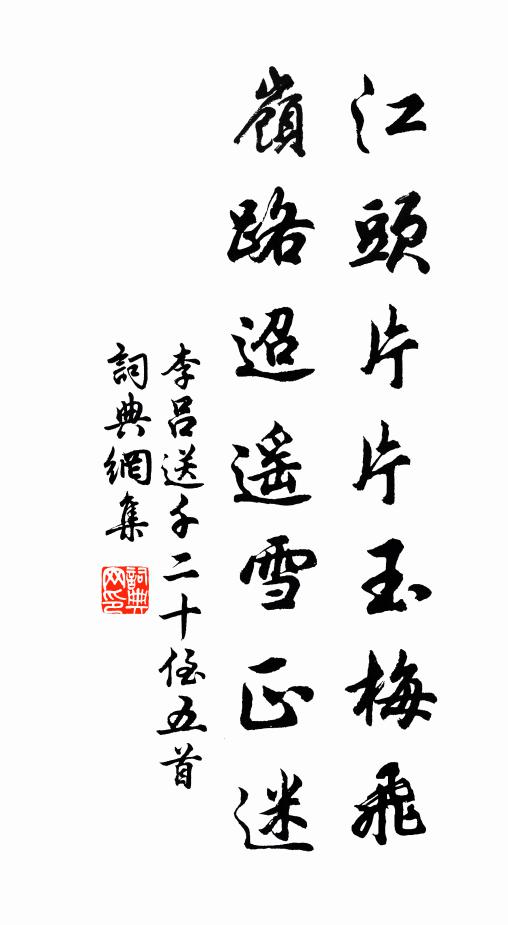 江頭片片玉梅飛
嶺路迢遥雪正迷
李呂送千二十侄五首
詞典網集
詞典网印